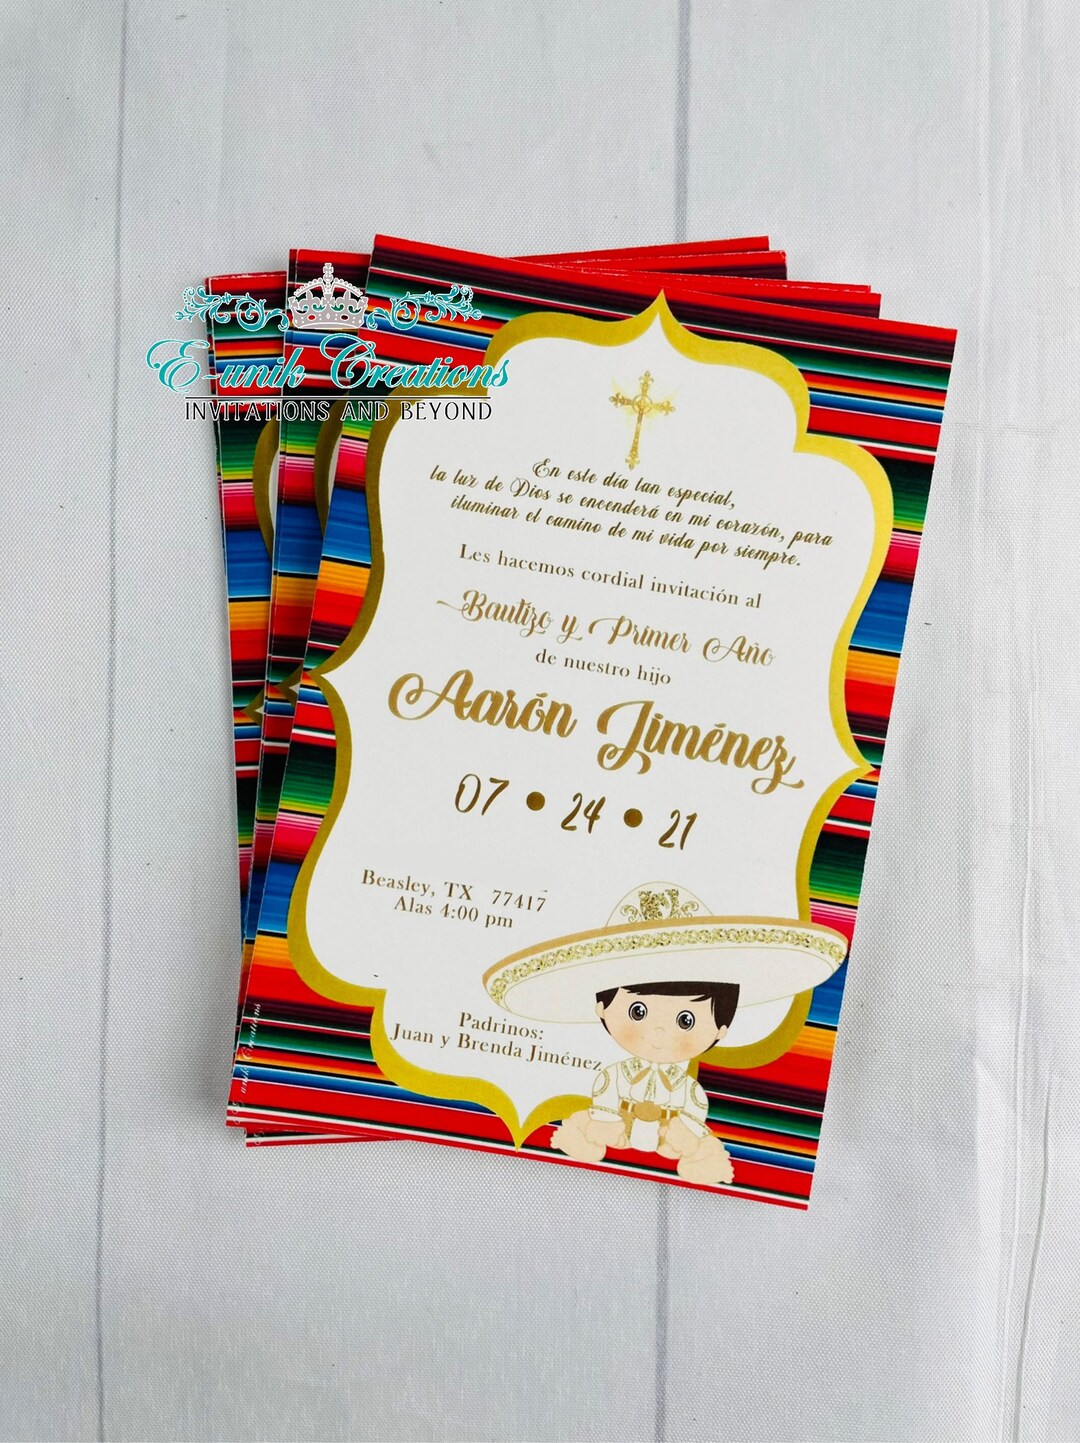 E-unik Creations
INVITATIONS AND BEYOND
En este día tan especial,
la luz de Dios se encenderá en mi corazón, para
iluminar el camino de mi vida por siempre.
Les hacemos cordial invitación al
Bautizo y Primer Año
de nuestro hijo
Aarón Jiménez
07 • 24 • 21
Beasley, TX 77417
Alas 4:00 pm
Padrinos:
Juan y Brenda Jiménez
E-unik Creations